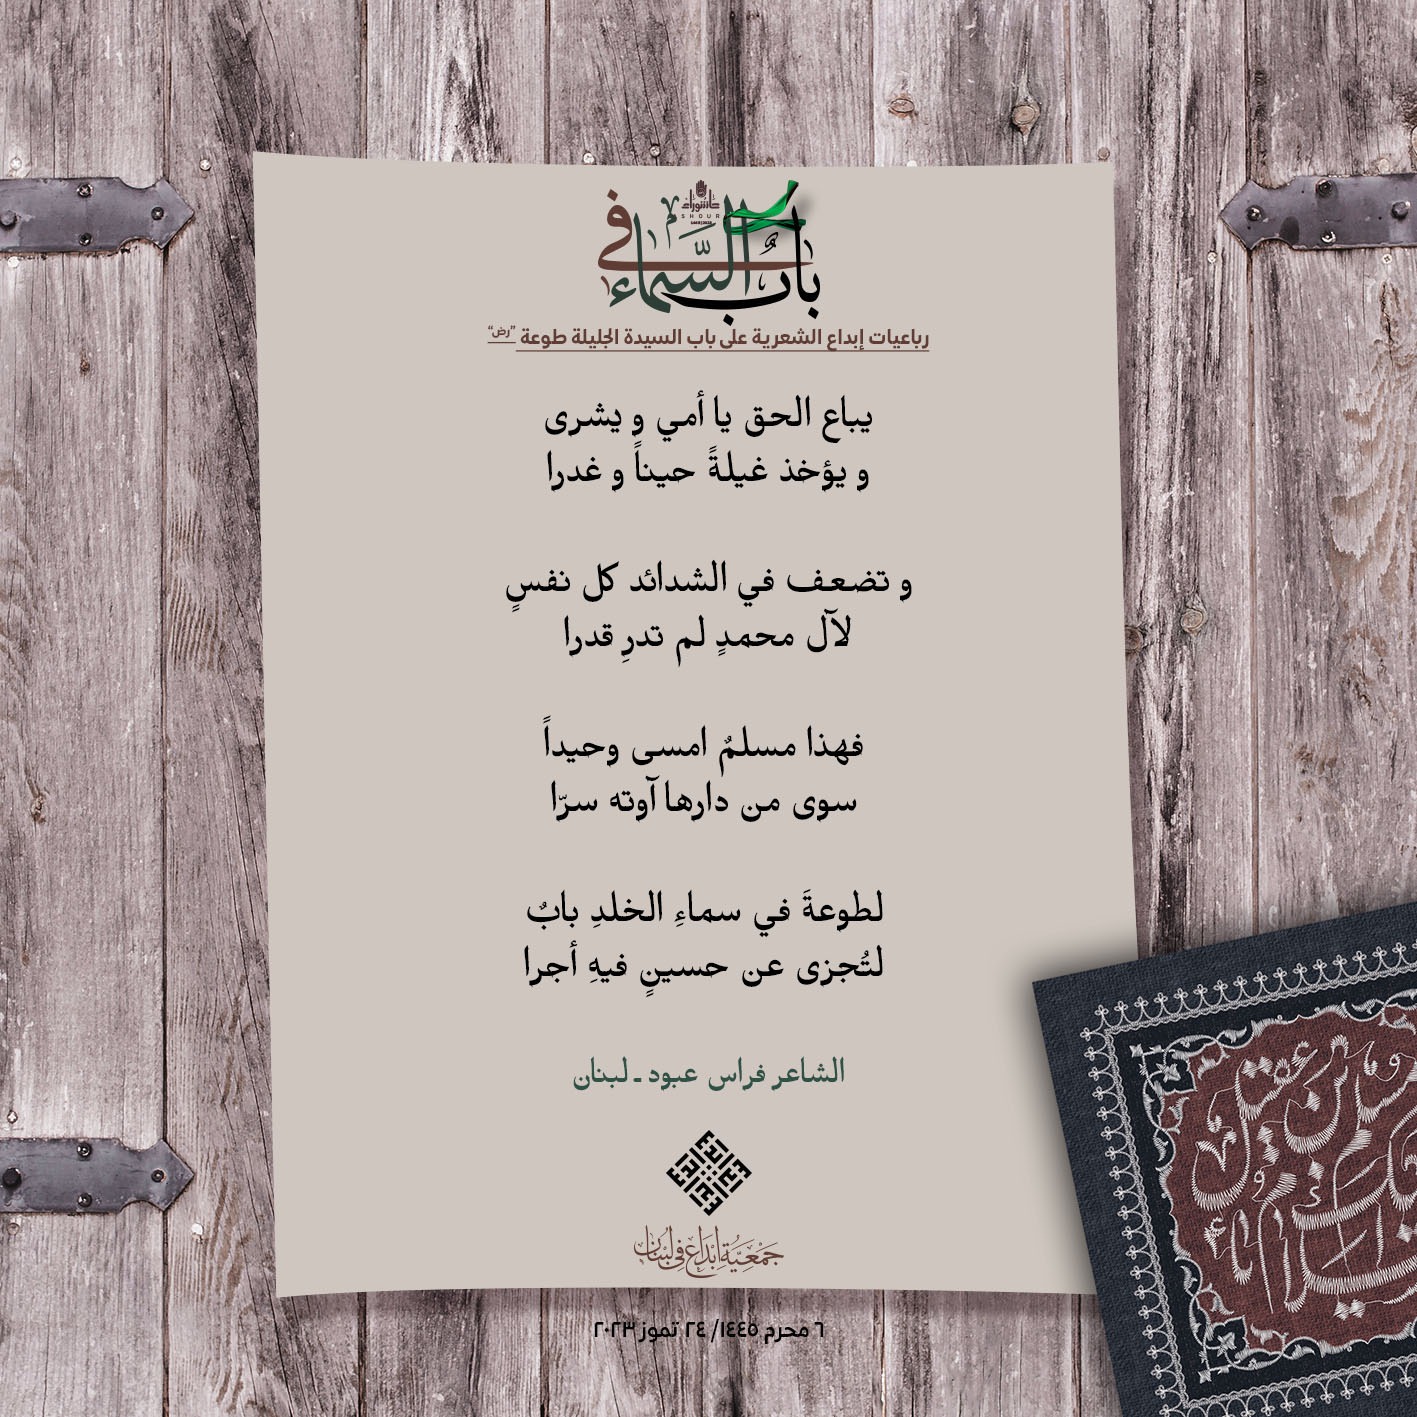 عاشوراء
باب في السَّماء
رباعيات إبداع الشعرية على باب السيدة الجليلة طوعة "رض"
يباع الحق يا أمي و يشرى
و يؤخذ غيلةً حيناً و غدرا
و تضعف في الشدائد كل نفسٍ
لآل محمدٍ لم تدرِ قدرا
فهذا مسلمٌ امسى وحيداً
سوى من دارها آوته سرّا
لطوعةَ في سماءِ الخلدِ بابٌ
لتُجزى عن حسينٍ فيهِ أجرا
الشاعر فراس عبود ـ لبنان
جمعية إبداع في لبنان
٦ محرم ١٤٤٥/ ٢٤ تموز ٢٠٢٣